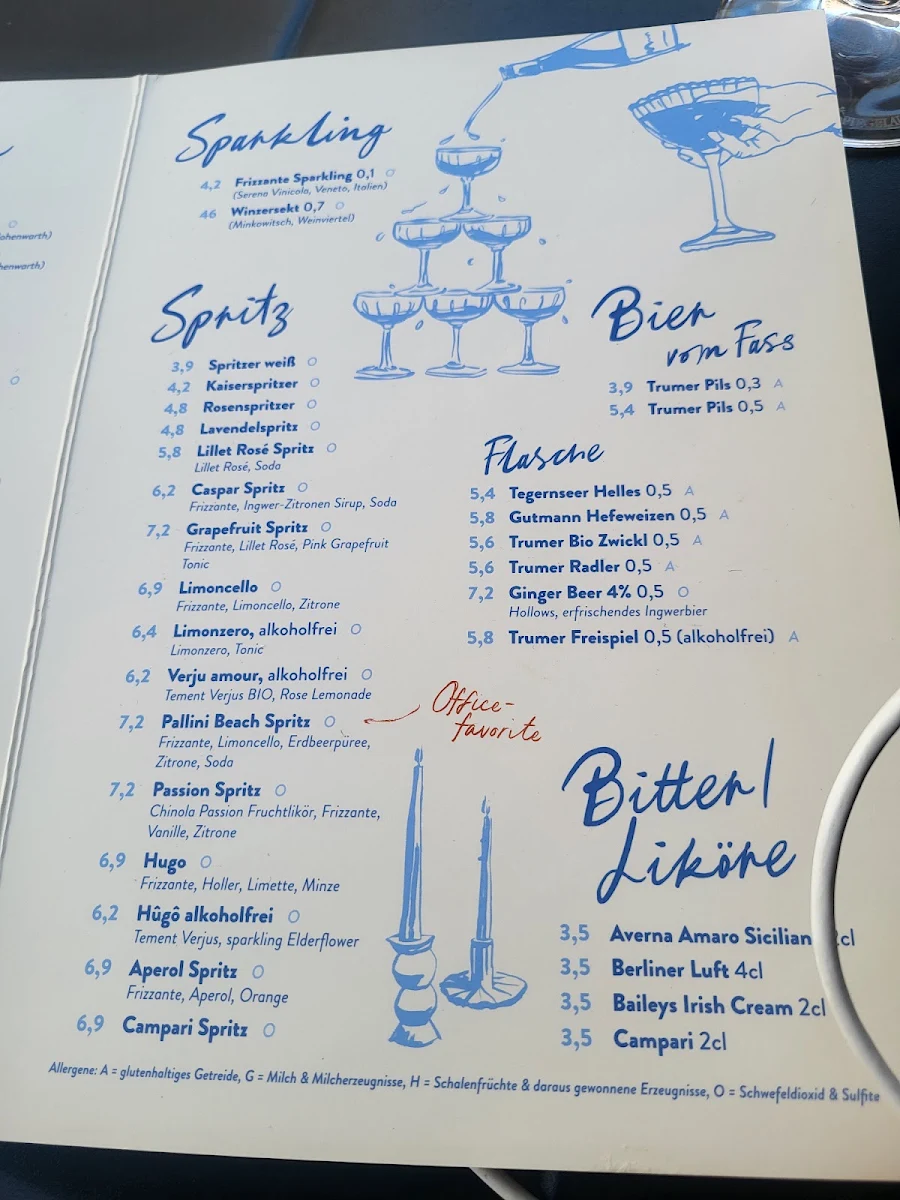 ohenwarth)
henwarth)
O
O
Sparkling
4,2 Frizzante Sparkling 0,1 O
(Serena Vinicola, Veneto, Italien)
46 Winzersekt 0,7 O
(Minkowitsch, Weinviertel)
Spritz
3,9 Spritzer weiß O
4,2 Kaiserspritzer O
4,8 Rosenspritzer O
4,8 Lavendelspritz O
5,8 Lillet Rosé Spritz O
Lillet Rosé, Soda
6,2 Caspar Spritz O
Frizzante, Ingwer-Zitronen Sirup, Soda
7,2 Grapefruit Spritz O
Frizzante, Lillet Rosé, Pink Grapefruit
Tonic
6,9 Limoncello O
Frizzante, Limoncello, Zitrone
6,4 Limonzero, alkoholfrei O
Limonzero, Tonic
6,2 Verju amour, alkoholfrei O
Tement Verjus BIO, Rose Lemonade
7,2 Pallini Beach Spritz O
Frizzante, Limoncello, Erdbeerpüree,
Zitrone, Soda
Office-
favorite
7,2 Passion Spritz O
Chinola Passion Fruchtlikör, Frizzante,
Vanille, Zitrone
6,9 Hugo O
Frizzante, Holler, Limette, Minze
6,2 Hûgô alkoholfrei O
Tement Verjus, sparkling Elderflower
6,9 Aperol Spritz O
Frizzante, Aperol, Orange
6,9 Campari Spritz O
Bier
vom Fass
3,9 Trumer Pils 0,3 A
5,4 Trumer Pils 0,5 A
Flasche
5,4 Tegernseer Helles 0,5 A
5,8 Gutmann Hefeweizen 0,5 A
5,6 Trumer Bio Zwickl 0,5 A
5,6 Trumer Radler 0,5 A
7,2 Ginger Beer 4% 0,5 O
Hollows, erfrischendes Ingwerbier
5,8 Trumer Freispiel 0,5 (alkoholfrei) A
Bitter/
Liköre
3,5 Averna Amaro Sicilian cl
3,5 Berliner Luft 4cl
3,5 Baileys Irish Cream 2cl
3,5 Campari 2cl
Allergene: A = glutenhaltiges Getreide, G = Milch & Milcherzeugnisse, H = Schalenfrüchte & daraus gewonnene Erzeugnisse, O = Schwefeldioxid & Sulfite